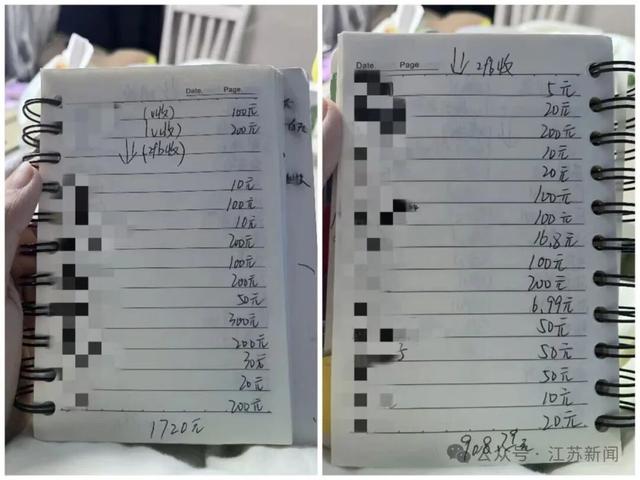 Date. Page.
(v收) 100元
(v收) 200元
↓(zfb收)
10元
100元
10元
200元
100元
200元
50元
300元
200元
30元
20元
200元
1720元
Date. Page
↓zfb收
5元
20元
200元
10元
20元
100元
100元
16.8元
100元
200元
6.99元
50元
5 50元
50元
10元
20元
908.79元
公众号·江苏新闻